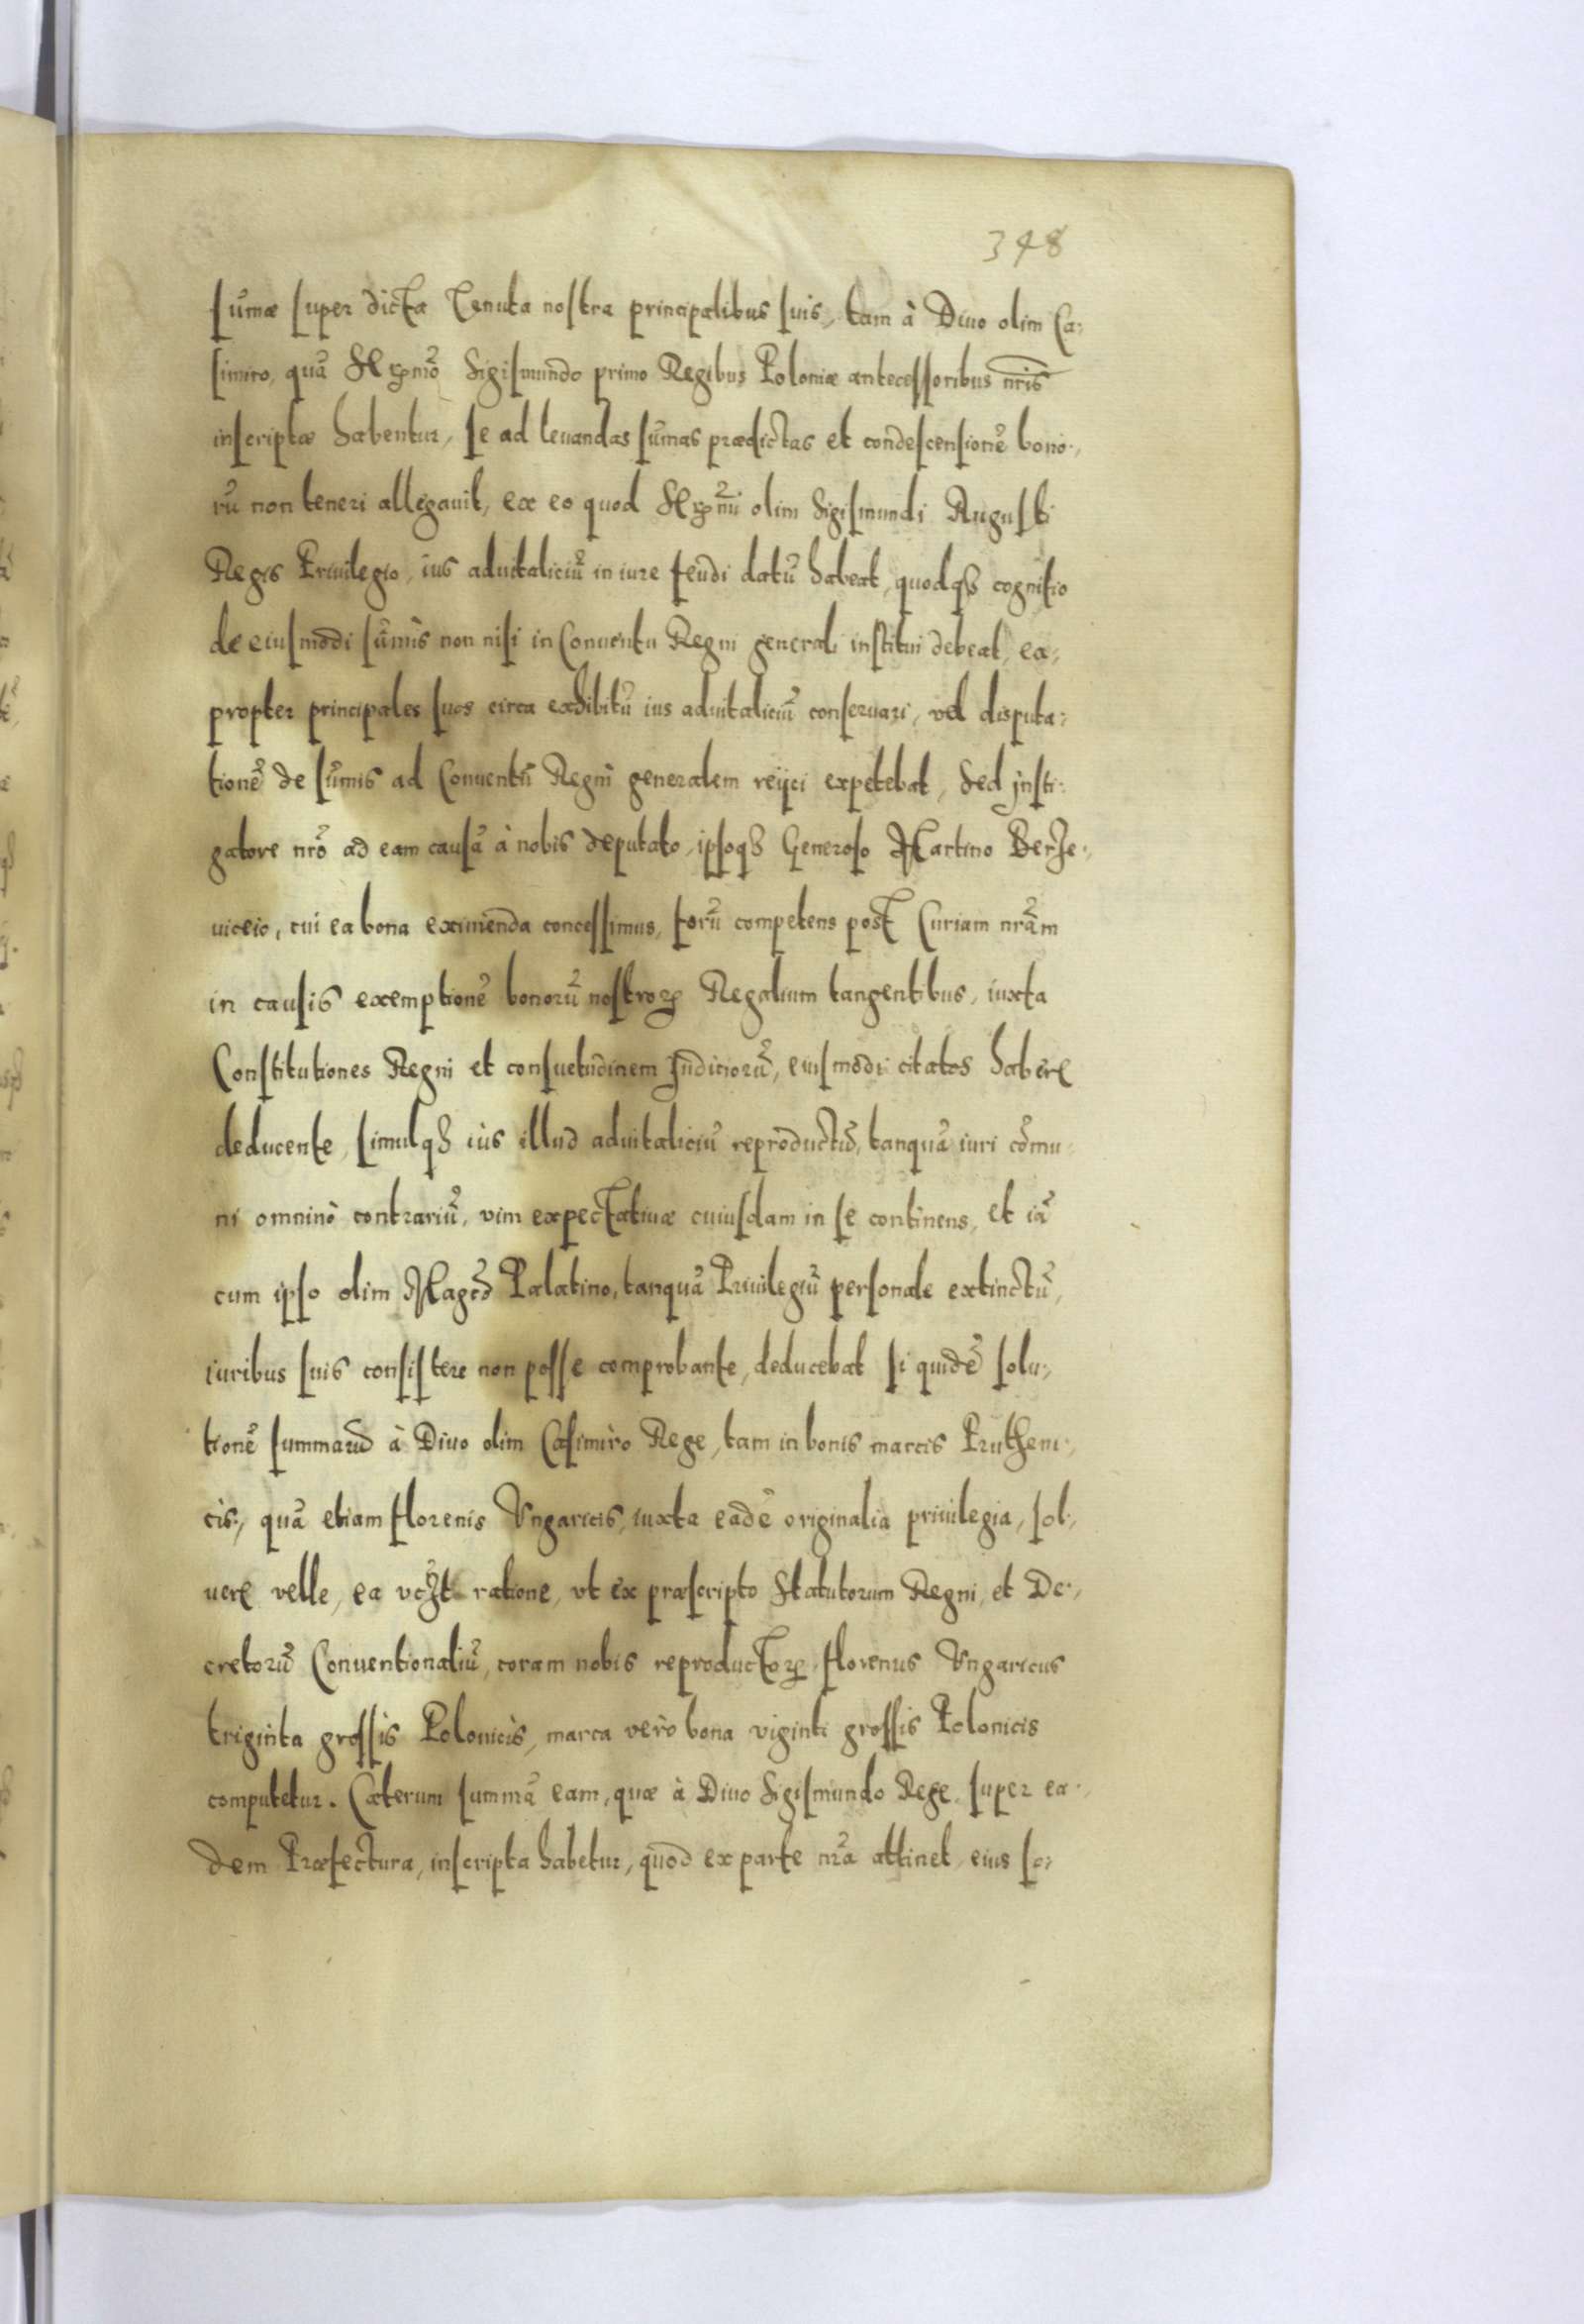 348
sum̃æ super dicta Tenuta nostra principalibus suis, tam à Diuo olim Ca-
simiro, quã Serꝫmõ Sigismundo primo Regibus Poloniæ antecessoribus nr̃is
inscriptæ habentur, se ad leuandas sum̃as prædictas et condescensionẽ bono-
rũ non teneri allegauit, ex eo quod Serꝫmi olim Sigismundi Augusti
Regis Priuilegio, ius aduitaliciũ in iure feudi datũ habeat, quodqꝫ cognitio
de eiusmodi sum̃is non nisi in Conuentu Regni generali institui debeat, ea-
propter principales suos circa exhibitũ ius aduitaliciũ conseruari, vel disputa-
tionẽ de sum̃is ad Conuentũ Regni generalem reijci expetebat, Sed Insti-
gatore nr̃o ad eam causã à nobis deputato, ipsoqꝫ Generoso Martino Berze-
uiceio, cui ea bona eximenda concessimus, forũ competens post Curiam nr̃am
in causis exemptionẽ bonorũ nostroꝝ Regalium tangentibus, iuxta
Constitutiones Regni et consuetudinem Iudiciorũ, eiusmodi citatos haberẽ
deducente, simulqꝫ iùs illud aduitaliciũ reproductũ, tanquã iuri cõmu-
ni omninò contrariũ, vim expectatiuæ cuiusdam in se continens, et iã
cum ipso olim Magcõ Palatino, tanquã Priuilegiũ personale extinctũ,
iuribus suis consistere non posse comprobante, deducebat si quidẽ solu-
tionẽ summarũ à Diuo olim Casimiro Rege, tam in bonis marcis Prutheni-
cis, quã etiam florenis Vngaricis, iuxta eadẽ originalia priuilegia, sol-
uerẽ velle, ea vcꝫt ratione, vt ex præscripto Statutorum Regni, et De-
cretorũ Conuentionaliũ, coram nobis reproductoꝝ, florenus Vngaricus
triginta grossis Polonicis, marca verò bona viginti grossis Polonicis
computetur. Cæterum summã eam, quæ à Diuo Sigismundo Rege super ea-
dem Præfectura, inscripta habetur, quod ex parte nr̃a attinet, eius so-